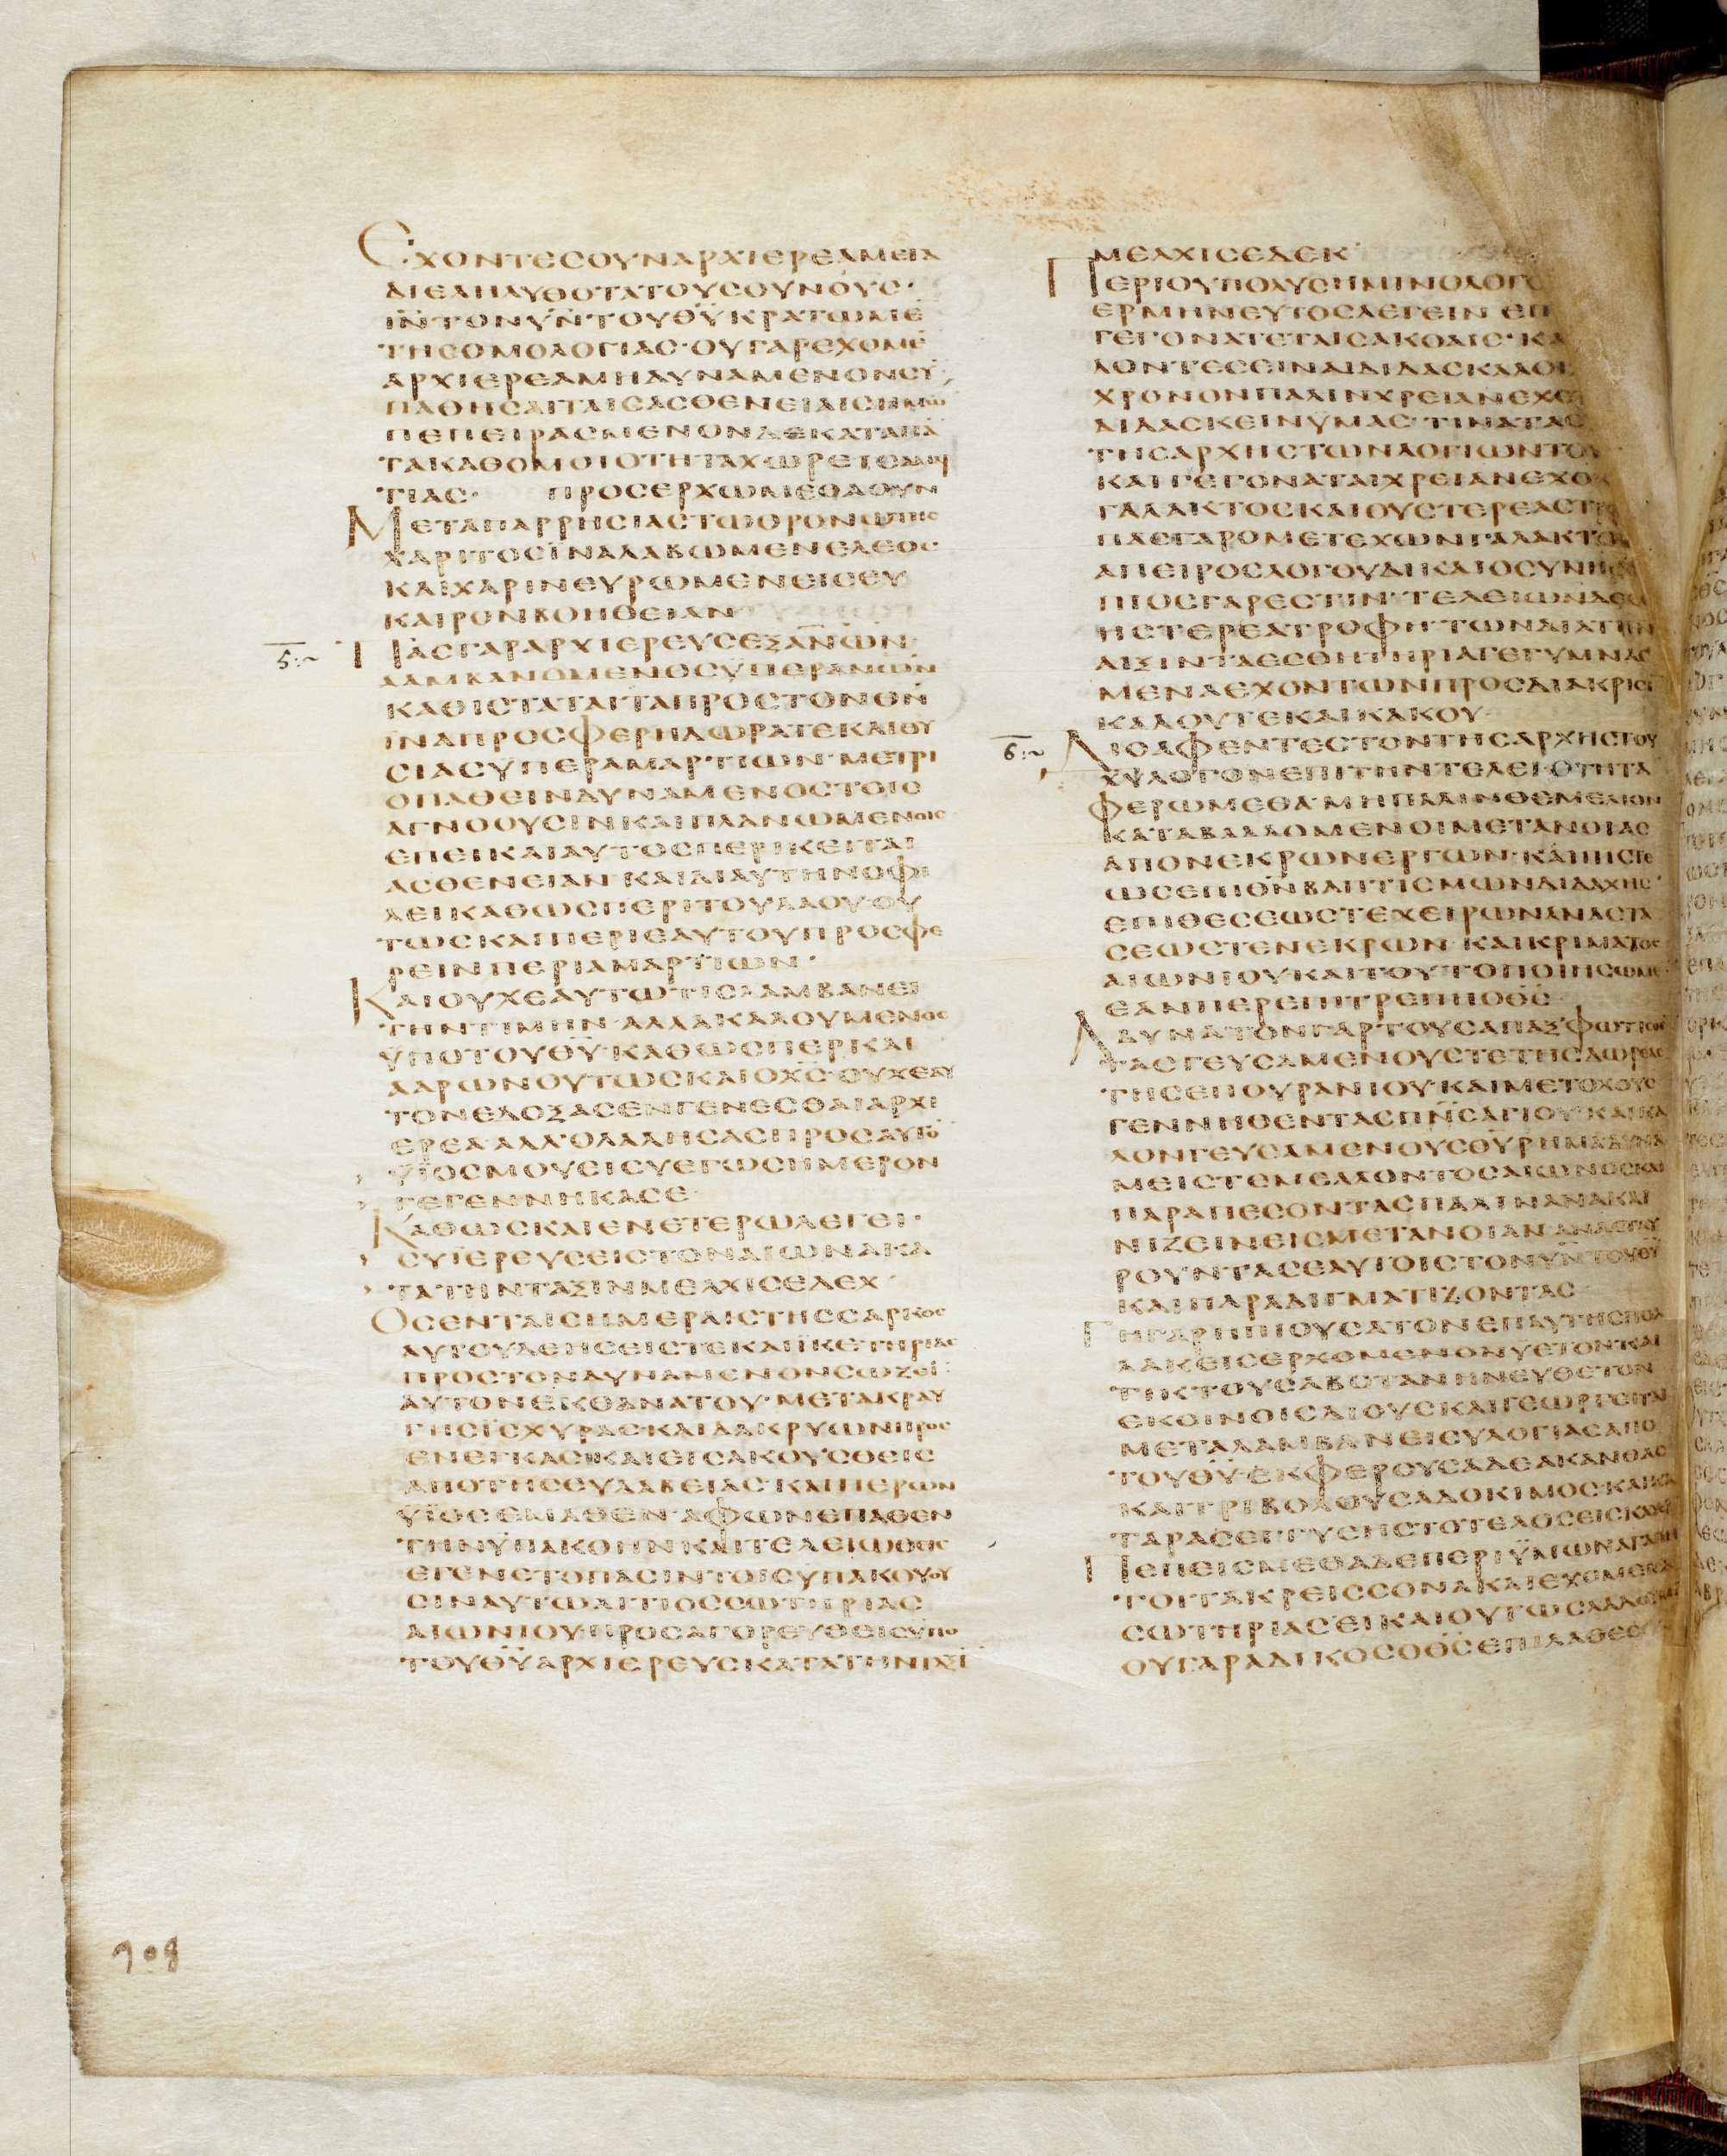 ΕΧΟΝΤΕCΟΥΝΑΡΧΙΕΡΕΑΜΕΓΑ
ΔΙΕΛΗΛΥΘΟΤΑΤΟΥCΟΥΝΟΥC·
ΙΝ̅ΤΟΝΥΝ̅ΤΟΥΘΥ̅ΚΡΑΤΩΜΕ̅
ΤΗCΟΜΟΛΟΓΙΑC·ΟΥΓΑΡΕΧΟΜΕ̅
ΑΡΧΙΕΡΕΑΜΗΔΥΝΑΜΕΝΟΝCΥ̅
ΠΑΘΗCΑΙΤΑΙCΑCΘΕΝΕΙΑΙCΗΜΩ̅
ΠΕΠΕΙΡΑCΜΕΝΟΝΔΕΚΑΤΑΠΑ̅
ΤΑΚΑΘΟΜΟΙΟΤΗΤΑΧΩΡΕΙCΑΜΑΡ
ΤΙΑC· ΠΡΟCΕΡΧΩΜΕΘΑΟΥΝ
ΜΕΤΑΠΑΡΡΗCΙΑCΤΩΘΡΟΝΩΤΗC
ΧΑΡΙΤΟCΪΝΑΛΑΒΩΜΕΝΕΛΕΟC·
ΚΑΙΧΑΡΙΝΕΥΡΩΜΕΝΕΙCΕΥ
ΚΑΙΡΟΝΒΟΗΘΕΙΑΝ
5:~
ΠΑCΓΑΡΑΡΧΙΕΡΕΥCΕΞΑΝ̅ΩΝ̅
ΛΑΜΒΑΝΟΜΕΝΟCΫΠΕΡΑΝ̅ΩΝ̅
ΚΑΘΙCΤΑΤΑΙΤΑΠΡΟCΤΟΝΘΝ̅
ΙΝΑΠΡΟCΦΕΡΗΔΩΡΑΤΕΚΑΙΘΥ
CΙΑCΫΠΕΡΑΜΑΡΤΙΩΝ·ΜΕΤΡΙ
ΟΠΑΘΕΙΝΔΥΝΑΜΕΝΟCΤΟΙC
ΑΓΝΟΟΥCΙΝΚΑΙΠΛΑΝΩΜΕΝΟΙC
ΕΠΕΙΚΑΙΑΥΤΟCΠΕΡΙΚΕΙΤΑΙ
ΑCΘΕΝΕΙΑΝ·ΚΑΙΔΙΑΥΤΗΝΟΦΙ
ΛΕΙΚΑΘΩCΠΕΡΙΤΟΥΛΑΟΥ·ΟΥ
ΤΩCΚΑΙΠΕΡΙΕΑΥΤΟΥΠΡΟCΦΕ
ΡΕΙΝΠΕΡΙΑΜΑΡΤΙΩΝ·
ΚΑΙΟΥΧΕΑΥΤΩΤΙCΛΑΜΒΑΝΕΙ
ΤΗΝΤΙΜΗΝ·ΑΛΛΑΚΑΛΟΥΜΕΝΟC
ΫΠΟΤΟΥΘΥ̅·ΚΑΘΩCΠΕΡΚΑΙ
ΑΑΡΩΝΟΥΤΩCΚΑΙΟΧC̅·ΟΥΧΕΑΥ
ΤΟΝΕΔΟΞΑCΕΝΓΕΝΕCΘΑΙΑΡΧΙ
ΕΡΕΑ·ΑΛΛ'ΟΛΑΛΗCΑCΠΡΟCΑΥΤΟ̅
ΫΪΟCΜΟΥΕΙCΥΕΓΩCΗΜΕΡΟΝ
ΓΕΓΕΝΝΗΚΑCΕ·
ΚΑΘΩCΚΑΙΕΝΕΤΕΡΩΛΕΓΕΙ·
CΥΪΕΡΕΥCΕΙCΤΟΝΑΙΩΝΑΚΑ
ΤΑΤΗΝΤΑΞΙΝΜΕΛΧΙCΕΔΕΧ·
ΟCΕΝΤΑΙCΗΜΕΡΑΙCΤΗCCΑΡΚΟC
ΑΥΤΟΥΔΕΗCΕΙCΤΕΚΑΙΪΚΕΤΗΡΙΑC
ΠΡΟCΤΟΝΔΥΝΑΜΕΝΟΝCΩΖΕΙ̅
ΑΥΤΟΝΕΚΘΑΝΑΤΟΥ·ΜΕΤΑΚΡΑΥ
ΓΗCΪCΧΥΡΑC·ΚΑΙΔΑΚΡΥΩΝΠΡΟC
ΕΝΕΓΚΑCΚΑΙΕΙCΑΚΟΥCΘΕΙC
ΑΠΟΤΗCΕΥΛΑΒΕΙΑC·ΚΑΙΠΕΡΩΝ
ΫΪΟCΕΜΑΘΕΝ·ΑΦΩΝΕΠΑΘΕΝ
ΤΗΝΫΠΑΚΟΗΝΚΑΙΤΕΛΕΙΩΘΕΙC
ΕΓΕΝΕΤΟΠΑCΙΝΤΟΙCΫΠΑΚΟΥΟΥ
CΙΝΑΥΤΩΑΙΤΙΟCCΩΤΗΡΙΑC
ΑΙΩΝΙΟΥ·ΠΡΟCΑΓΟΡΕΥΘΕΙCΥΠΟ
ΤΟΥΘΥ̅ΑΡΧΙΕΡΕΥCΚΑΤΑΤΗΝΤΑΞΙ̅
ΜΕΛΧΙCΕΔΕΚ·
ΠΕΡΙΟΥΠΟΛΥCΗΜΙΝΟΛΟΓΟ
ΕΡΜΗΝΕΥΤΟCΛΕΓΕΙΝ ΕΠ
ΓΕΓΟΝΑΤΕΤΑΙCΑΚΟΑΙC·ΚΑ
ΛΟΝΤΕCΕΙΝΑΙΔΙΔΑCΚΑΛΟΙ
ΧΡΟΝΟΝΠΑΛΙΝΧΡΕΙΑΝΕΧΕ
ΔΙΔΑCΚΕΙΝΫΜΑC·ΤΙΝΑΤΑC
ΤΗCΑΡΧΗCΤΩΝΛΟΓΙΩΝΤΟΥ
ΚΑΙΓΕΓΟΝΑΤΑΙΧΡΕΙΑΝΕΧΟ
ΓΑΛΑΚΤΟCΚΑΙΟΥCΤΕΡΕΑCΤΡΟ
ΠΑCΓΑΡΟΜΕΤΕΧΩΝΓΑΛΑΚΤΟ
ΑΠΕΙΡΟCΛΟΓΟΥΔΙΚΑΙΟCΥΝΗC
ΠΙΟCΓΑΡΕCΤΙΝ·ΤΕΛΕΙΩΝΔΕ
ΗCΤΕΡΕΑΤΡΟΦΗ·ΤΩΝΔΙΑΤΗΝ
ΑΙΞΙΝΤΑΕCΘΗΤΗΡΙΑΓΕΓΥΜΝΑC
ΜΕΝΑΕΧΟΝΤΩΝΠΡΟCΔΙΑΚΡΙCΙ̅
ΚΑΛΟΥΤΕΚΑΙΚΑΚΟΥ·
6:~
ΔΙΟΑΦΕΝΤΕCΤΟΝΤΗCΑΡΧΗCΤΟΥ
ΧΥ̅ΛΟΓΟΝΕΠΙΤΗΝΤΕΛΕΙΟΤΗΤΑ
ΦΕΡΩΜΕΘΑ·ΜΗΠΑΛΙΝΘΕΜΕΛΙΟΝ
ΚΑΤΑΒΑΛΛΟΜΕΝΟΙΜΕΤΑΝΟΙΑC
ΑΠΟΝΕΚΡΩΝΕΡΓΩΝ·ΚΑΙΠΙCΤΕ
ΩCΕΠΙΘΝ̅ΒΑΠΤΙCΜΩΝΔΙΔΑΧΗC·
ΕΠΙΘΕCΕΩCΤΕΧΕΙΡΩΝΑΝΑCΤΑ
CΕΩCΤΕΝΕΚΡΩΝ·ΚΑΙΚΡΙΜΑΤΟC
ΑΙΩΝΙΟΥΚΑΙΤΟΥΤΟΠΟΙΗCΩΜΕ̅
ΕΑΝΠΕΡΕΠΙΤΡΕΠΗΟΘC̅
ΑΔΥΝΑΤΟΝΓΑΡΤΟΥCΑΠΑΞΦΩΤΙCΘΕ̅
ΤΑCΓΕΥCΑΜΕΝΟΥCΤΕΤΗCΔΩΡΕΑC
ΤΗCΕΠΟΥΡΑΝΙΟΥ·ΚΑΙΜΕΤΟΧΟΥC
ΓΕΝΝΗΘΕΝΤΑCΠΝ̅CΑΓΙΟΥ·ΚΑΙΚΑ
ΛΟΝΓΕΥCΑΜΕΝΟΥCΘΥ̅ΡΗΜΑΔΥΝΑ
ΜΕΙCΤΕΜΕΛΛΟΝΤΟCΑΙΩΝΟCΚΑΙ
ΠΑΡΑΠΕCΟΝΤΑCΠΑΛΙΝΑΝΑΚΑΙ
ΝΙΖΕΙΝΕΙCΜΕΤΑΝΟΙΑΝ·ΑΝΑCΤΑΥ
ΡΟΥΝΤΑCΕΑΥΤΟΙCΤΟΝΥΝ̅ΤΟΥΘΥ̅
ΚΑΙΠΑΡΑΔΙΓΜΑΤΙΖΟΝΤΑC
ΓΗΓΑΡΗΠΙΟΥCΑΤΟΝΕΠΑΥΤΗCΠΟΛ
ΛΑΚΕΙCΕΡΧΟΜΕΝΟΝΫΕΤΟΝΚΑΙ
ΤΙΚΤΟΥCΑΒΟΤΑΝΗΝΕΥΘΕΤΟΝ
ΕΚΟΙΝΟΙCΔΙΟΥCΚΑΙΓΕΩΡΓΕΙΤΑΙ
ΜΕΤΑΛΑΜΒΑΝΕΙΕΥΛΟΓΙΑCΑΠΟ
ΤΟΥΘΥ̅·ΕΚΦΕΡΟΥCΑΔΕΑΚΑΝΘΑC
ΚΑΙΤΡΙΒΟΛΟΥCΑΔΟΚΙΜΟC·ΚΑΙΚΑ
ΤΑΡΑCΕΓΓΥCΗCΤΟΤΕΛΟCΕΙCΚΑΥ
ΠΕΠΕΙCΜΕΘΑΔΕΠΕΡΙΫΜΩΝΑΓΑΠΗ
ΤΟΙΤΑΚΡΕΙCCΟΝΑΚΑΙΕΧΟΜΕΝΑ
CΩΤΗΡΙΑC·ΕΙΚΑΙΟΥΤΩCΛΑΛΟΥ
ΟΥΓΑΡΑΔΙΚΟCΟΘC̅ΕΠΙΛΑΘΕC
908